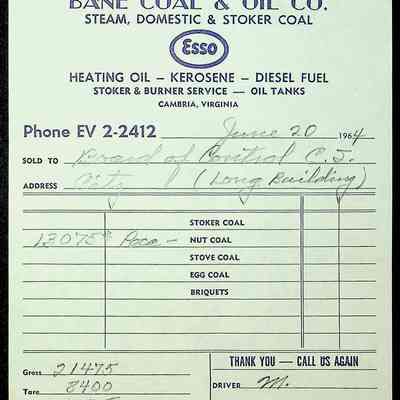 BANE COAL & OIL CO.
STEAM, DOMESTIC & STOKER COAL
Esso
HEATING OIL — KEROSENE — DIESEL FUEL
STOKER & BURNER SERVICE — OIL TANKS
CAMBRIA, VIRGINIA
Phone EV 2-2412 June 20 1964
SOLD TO Board of Control C. I.
ADDRESS City (Long Building)
STOKER COAL
13075# Poca — NUT COAL
STOVE COAL
EGG COAL
BRIQUETS
Gross 21475
THANK YOU — CALL US AGAIN
Tare 8400
DRIVER M.